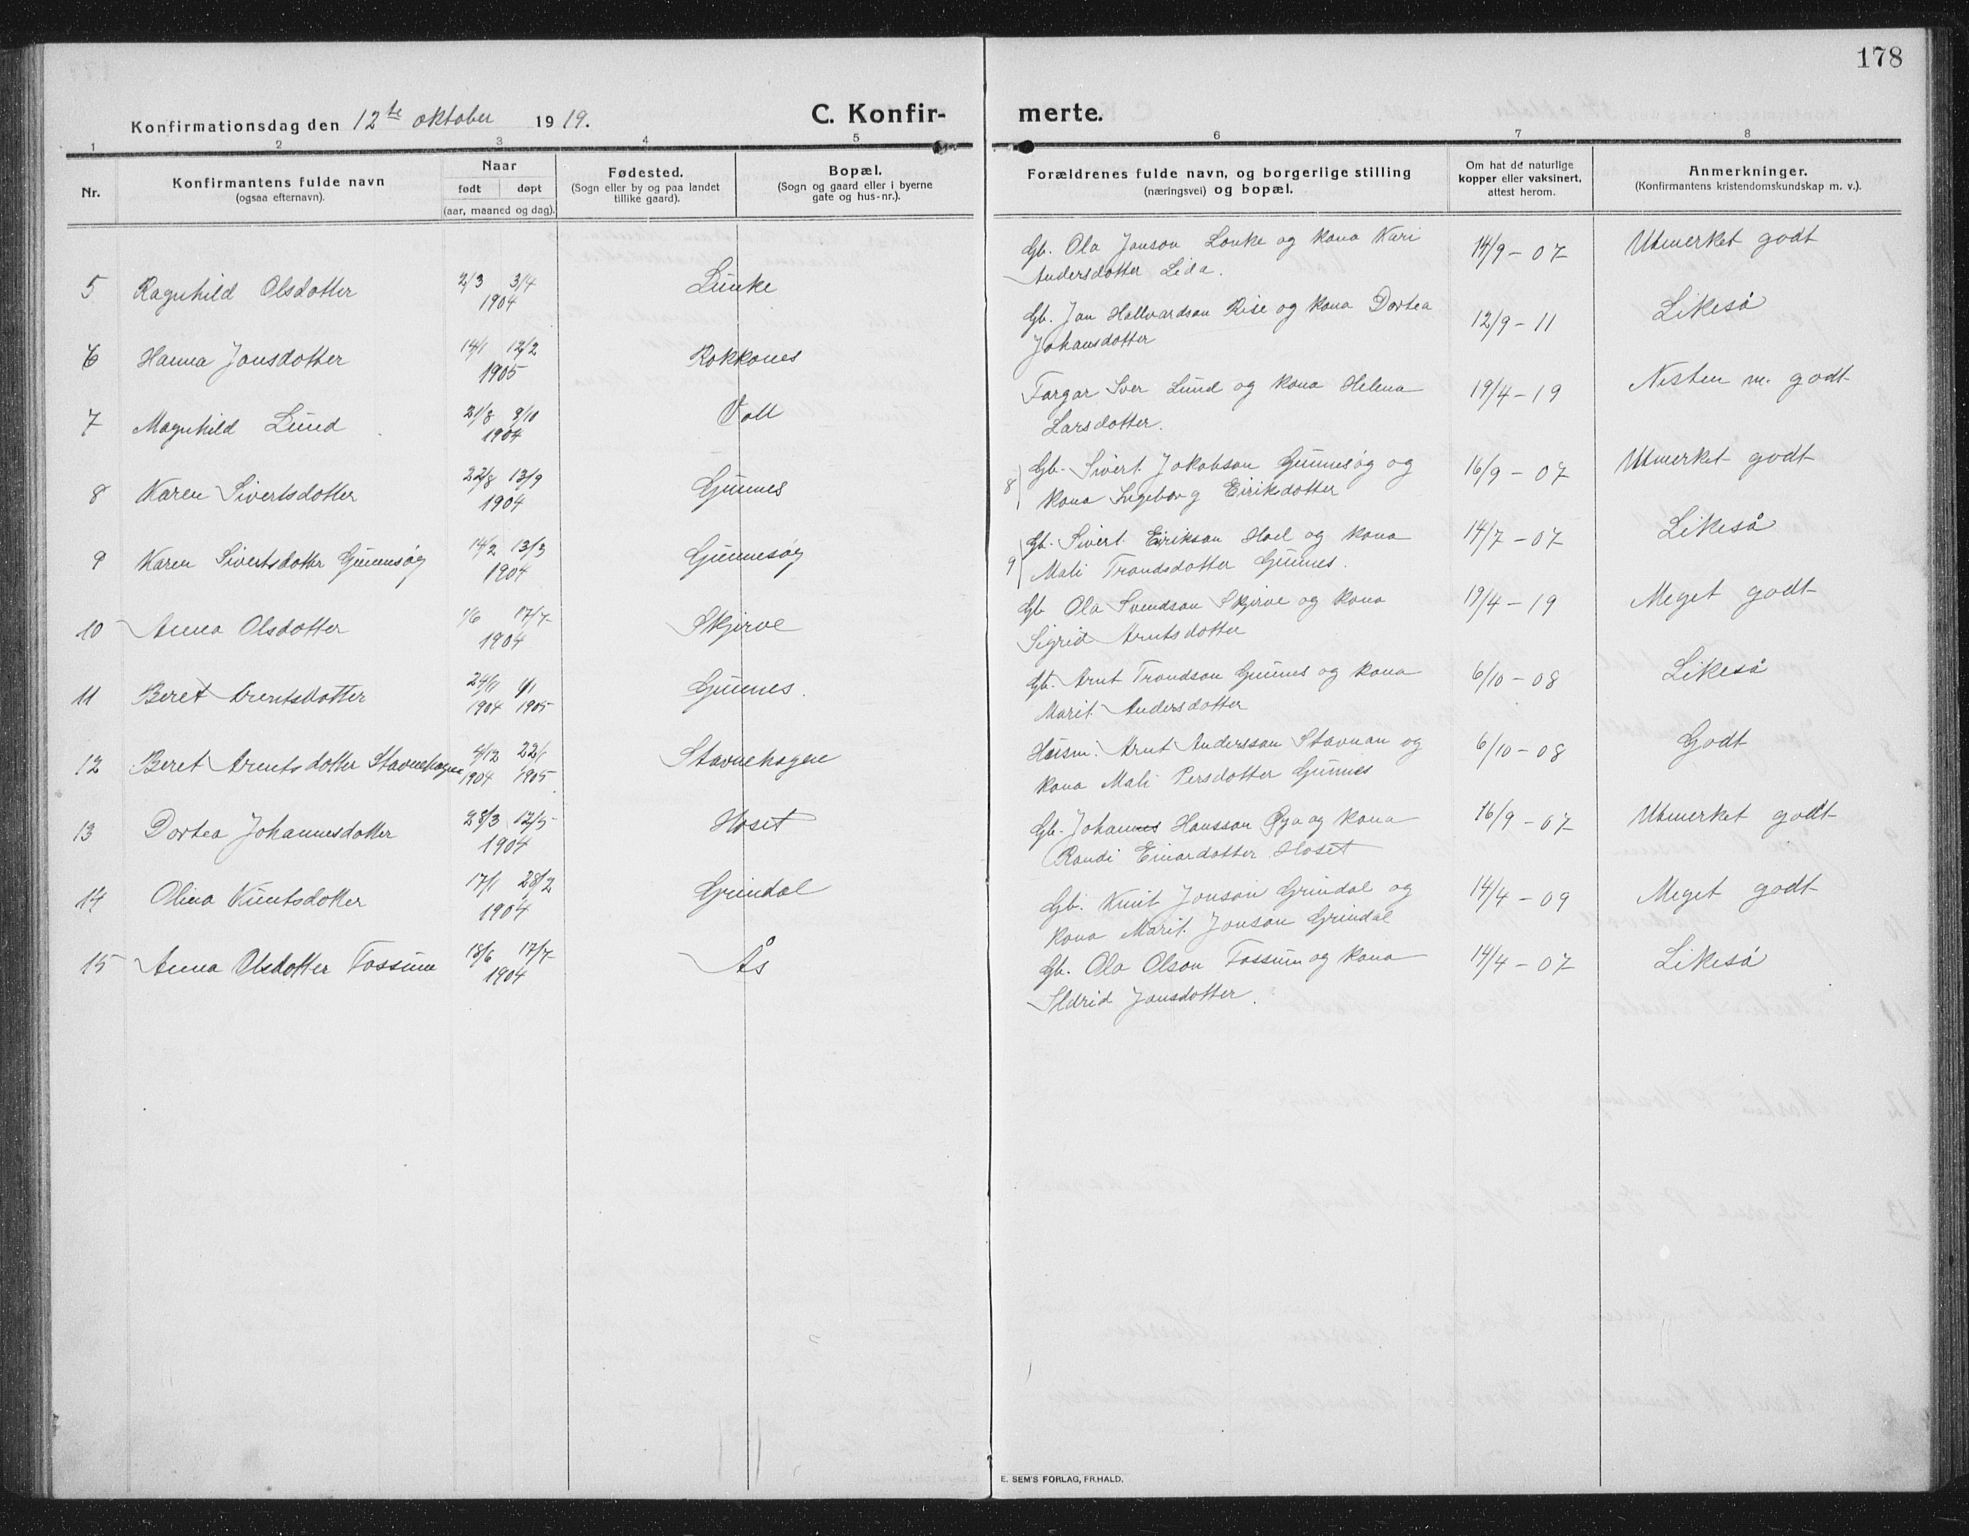 178
Konfirmationsdag den 12te oktober 1919.
C. Konfirmerte.
1 2 3 4 5 6 7 8
Nr.
Konfirmantens fulde navn
(ogsaa efternavn).
Naar
født døpt
(aar, maaned og dag).
Fødested.
(Sogn eller by og paa landet
tillike gaard).
Bopæl.
(Sogn og gaard eller i byerne
gate og hus-nr.).
Forældrenes fulde navn, og borgerlige stilling
(næringsvei) og bopæl.
Om hat de naturlige
kopper eller vaksinert,
attest herom.
Anmerkninger.
(Konfirmantens kristendomskundskap m. v.).
5 Ragnhild Olsdotter 2/3 3/4 1904 Lunke
Gb. Ola Jonson Lonke og kona Kari
Andersdotter Lida.
14/9 - 07 Utmerket godt
6 Hanna Jonsdotter 14/1 12/2 1905 Rokkones
Gb. Jon Hallvardson Rise og kona Dortea
Johansdotter
12/9 - 11 Likeså
7 Magnhild Lund 21/8 9/10 1904 Voll
Fargar Iver Lund og kona Helena
Larsdotter.
19/4 - 19 Nesten m. godt
8 Karen Sivertsdotter 22/8 13/9 1904 Gunnes
8) Gb. Sivert Jakobson Gunnesøg og
kona Ingeborg Eiriksdotter
16/9 - 07 Utmerket godt
9 Karen Sivertsdotter Gunnesøg 14/2 13/3 1904 Gunnesøg
9) Gb. Sivert Eirikson Hoel og kona
Mali Trondsdotter Gunnes.
14/7 - 07 Likeså
10 Anna Olsdotter 1/6 17/7 1904 Skjerve
Gb. Ola Svendson Skjerve og kona
Sigrid Arntsdotter
19/4 - 19 Meget godt
11 Beret Arentsdotter 24/11 1/1 1904 1905 Gunnes.
Gb. Arnt Trondson Gunnes og kona
Marit Andersdotter
6/10 - 08 Likeså
12 Beret Arentsdotter Stavnehagen 4/12 22/1 1904 1905 Stavnehagen
Husm. Arnt Andersson Stavnan og
kona Mali Persdotter Gunnes
6/10 - 08 Godt
13 Dortea Johannesdotter 28/3 12/5 1904 Hoset
Gb. Johannes Hansson Øya og kona
Randi Einardotter Hoset
16/9 - 07 Utmerket godt
14 Olina Knutsdotter 17/1 28/2 1904 Grindal
Gb. Knut Jonson Grindal og
kona Marit Jonson Grindal
14/4 - 09 Meget godt
15 Anna Olsdotter Fossum 18/6 17/7 1904 Ås
Gb. Ola Olson Fossum og kona
Ildrid Jonsdotter.
14/4 - 07 Likeså
E. SEM'S FORLAG, FR.HALD.